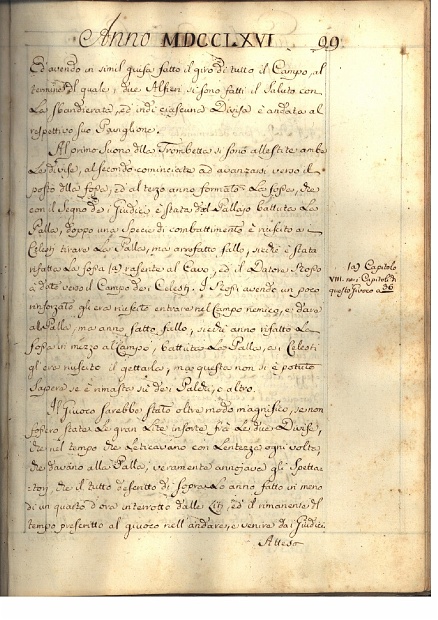 Anno MDCCLXVI 99
Ed' avendo in simil guisa fatto il giro di tutto il Campo, al
termine del quale i due Alfieri si sono fatti il Saluto con
La sbandierata, ed' indi ciascuna Divisa è andata al
respettivo suo Paviglione.
Al primo Suono della Trombetta si sono allestite ambe
Le divise, al secondo cominciate ad avanzarsi verso il
posto della fossa, ed' al terzo anno formato La fossa, che
con il Segno de i Giudici è stata dal Pallajo battuta La
Palla, doppo una Specie di combattimento è riuscito a
Celesti tirare La Palla, ma avvo fatto fallo, si è stata
rifatta La fossa (a) rasente al Cavo, ed il Datore Rosso
à dato verso il Campo de i Celesti. I Rossi avendo un poco
rinforzato gl'era riuscito entrare nel Campo nemico, e dare
a La Palla, ma anno fatto fallo, si è anno rifatto La
fossa in mezzo al Campo, battuta La Palla, a i Celesti
gl'era riuscito il gettarla, ma questa non si è potuto
sapere se è rimasta su de i Palchi, o altro.
Il Giuoco sarebbe stato oltre modo magnifico, se non
fossero state Le gran Lite insorte fra Le due Divise,
che nel tempo che Leticavano con Lentezza ogni volta,
che davano alla Palla, veramente annojava gli Spetta=
tori, che il tutto descritto di sopra Lo anno fatto in meno
di un quarto d'ora interrotto dalle Liti, ed' il rimanente del
tempo prescritto al giuoco nell'andare, e venire da i Giudici.
Attesa
(a) Capitolo
VIII. ne i Capitoli di
questo Giuoco a 96